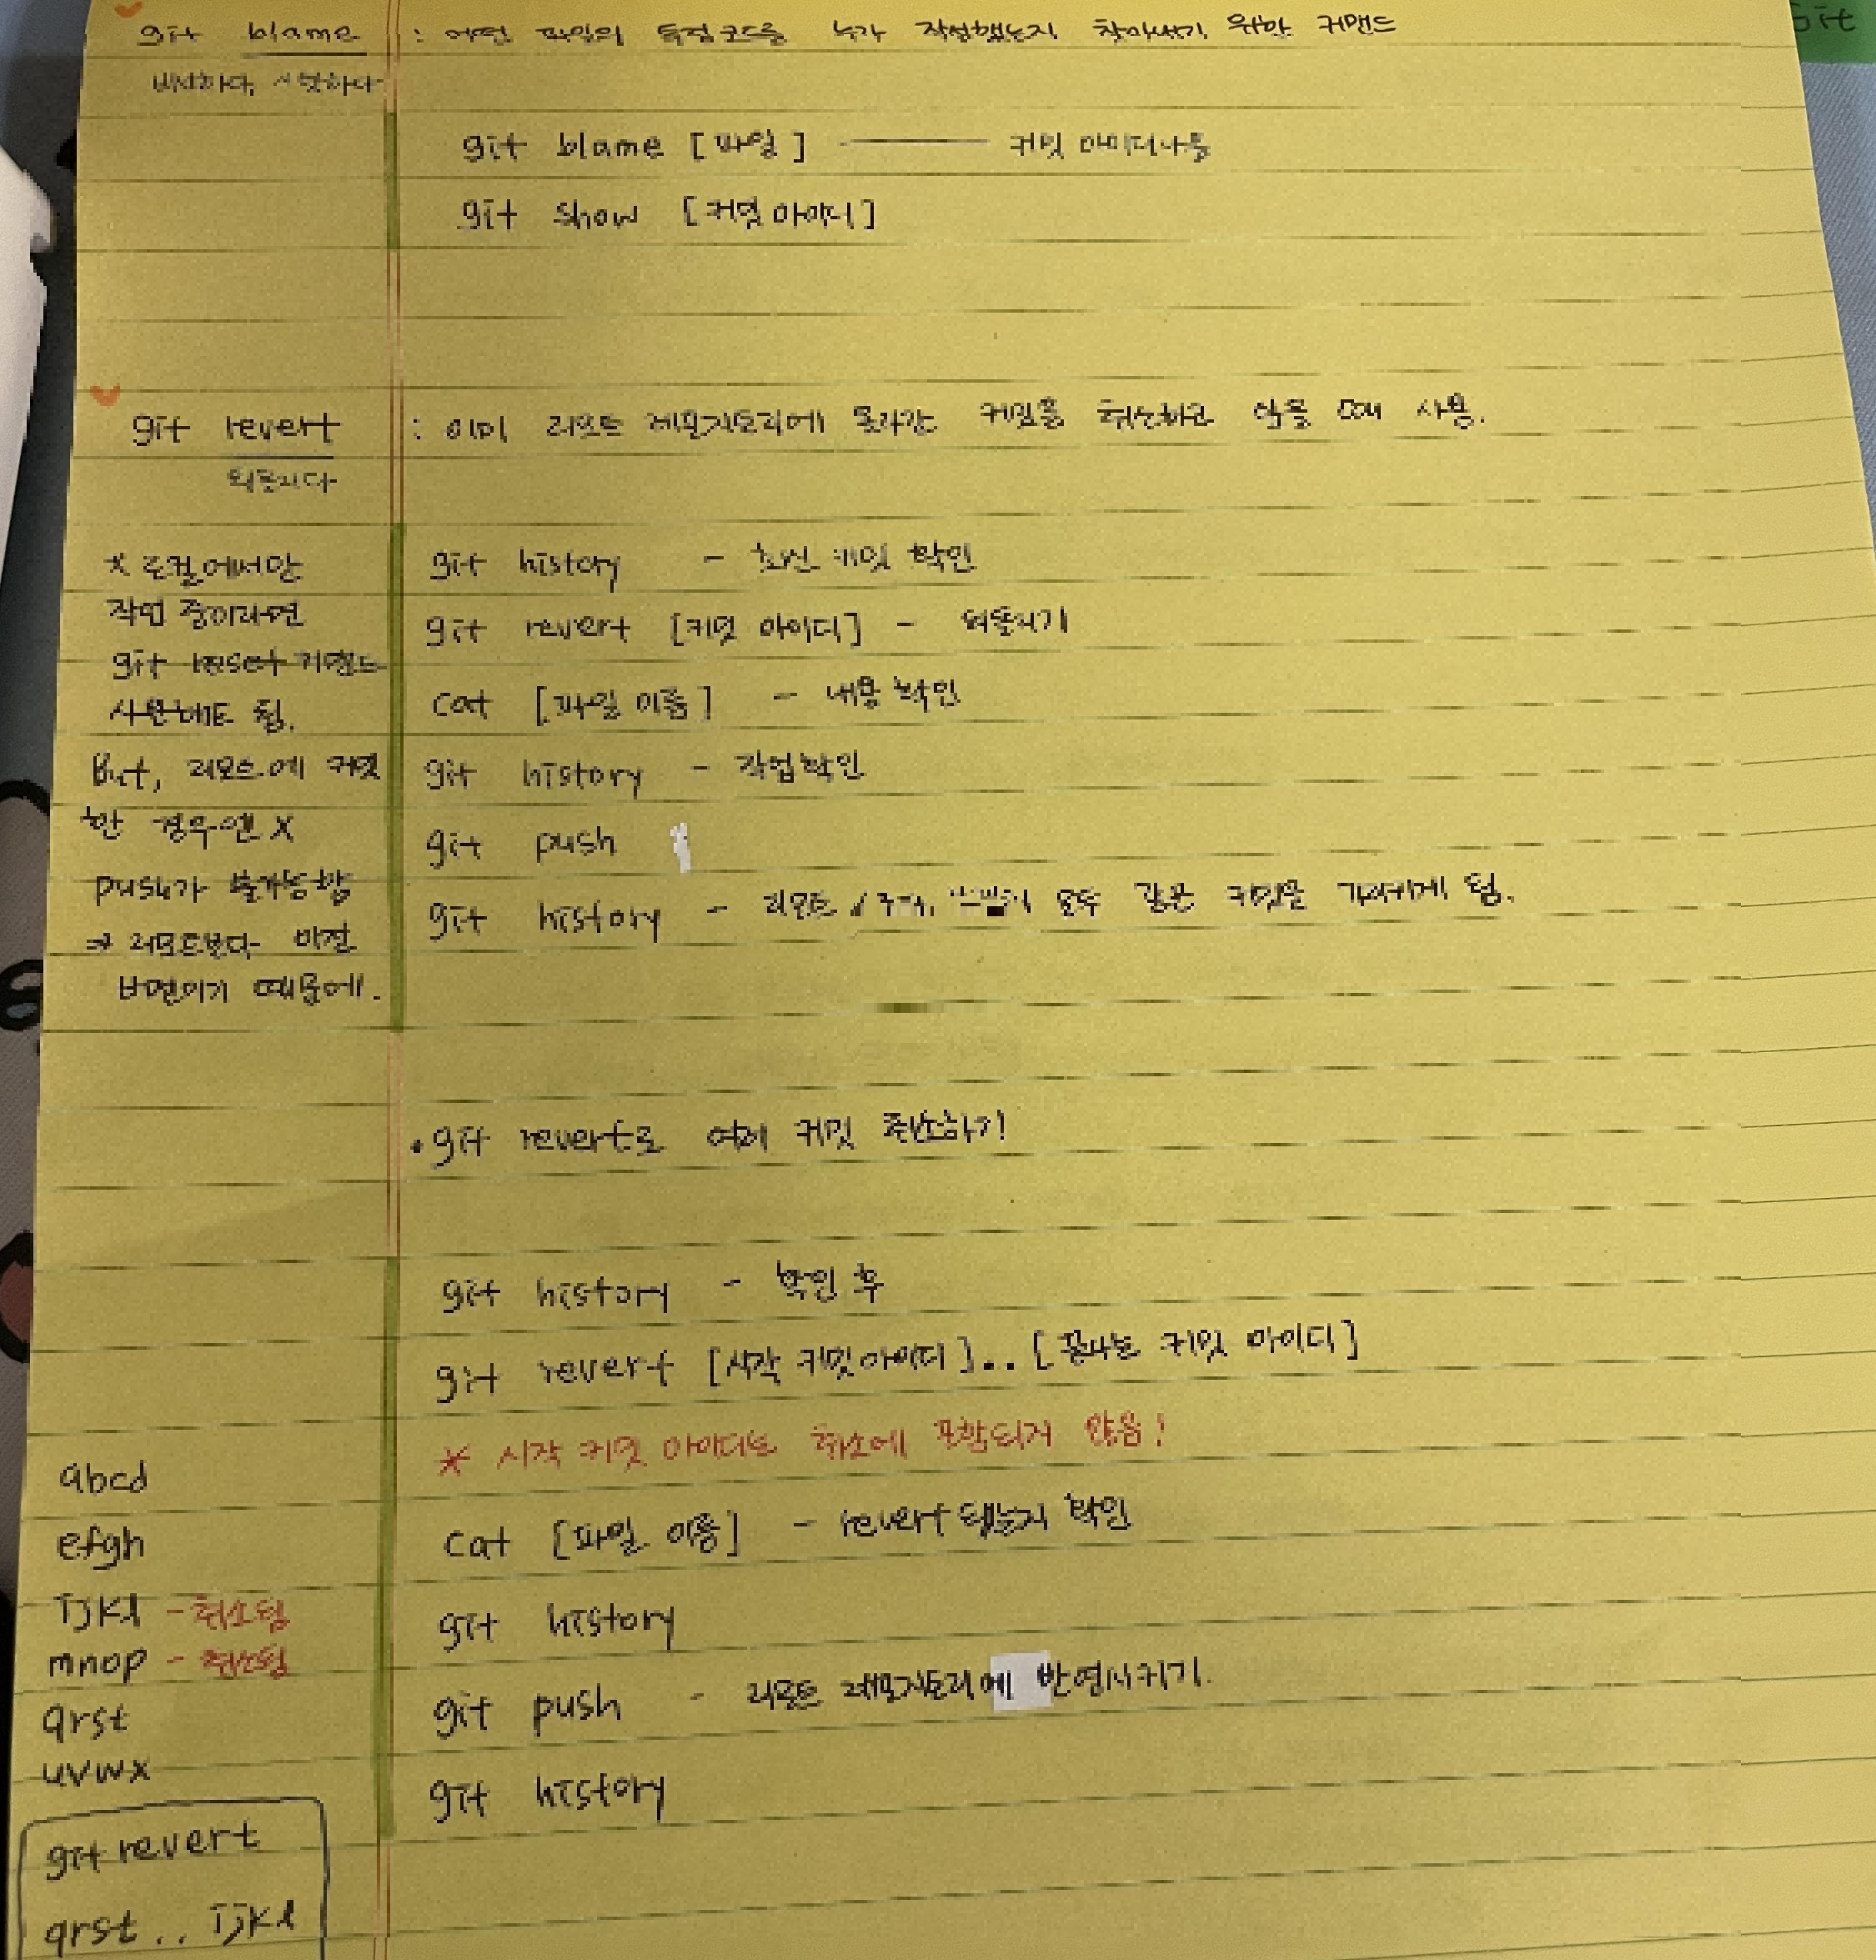 git blame : 어떤 파일의 특정 코드를 누가 작성했는지 찾아내기 위한 커맨드
git
비난하다,
git blame [파일] 커밋 아이디나옴
git show [커밋 아이디]
git revert : 이미 리모트 레포지토리에 올라간 커밋을 취소하고 싶을 때 사용.
되돌리다
* 로컬에서만
작업 중이라면
git reset 커맨드
사용해도 됨.
But, 리모트에 커밋
한 경우엔 X
push가 불가능함
→ 리모트보다 이전
버전이기 때문에.
git history - 최신 커밋 확인
git revert [커밋 아이디] - 되돌리기
cat [파일 이름] - 내용 확인
git history - 작업확인
git push
git history - 리모트 / 모두 같은 커밋을 가리키게 됨.
• git revert로 여러 커밋 취소하기
git history - 확인 후
git revert [시작 커밋 아이디]..[끝나는 커밋 아이디]
* 시작 커밋 아이디는 취소에 포함되지 않음!
cat [파일 이름] - revert 됐는지 확인
git history
git push - 리모트 레포지토리에 반영시키기.
git history
abcd
efgh
ijkl - 취소됨
mnop - 취소됨
qrst
uvwx
git revert
qrst .. ijkl